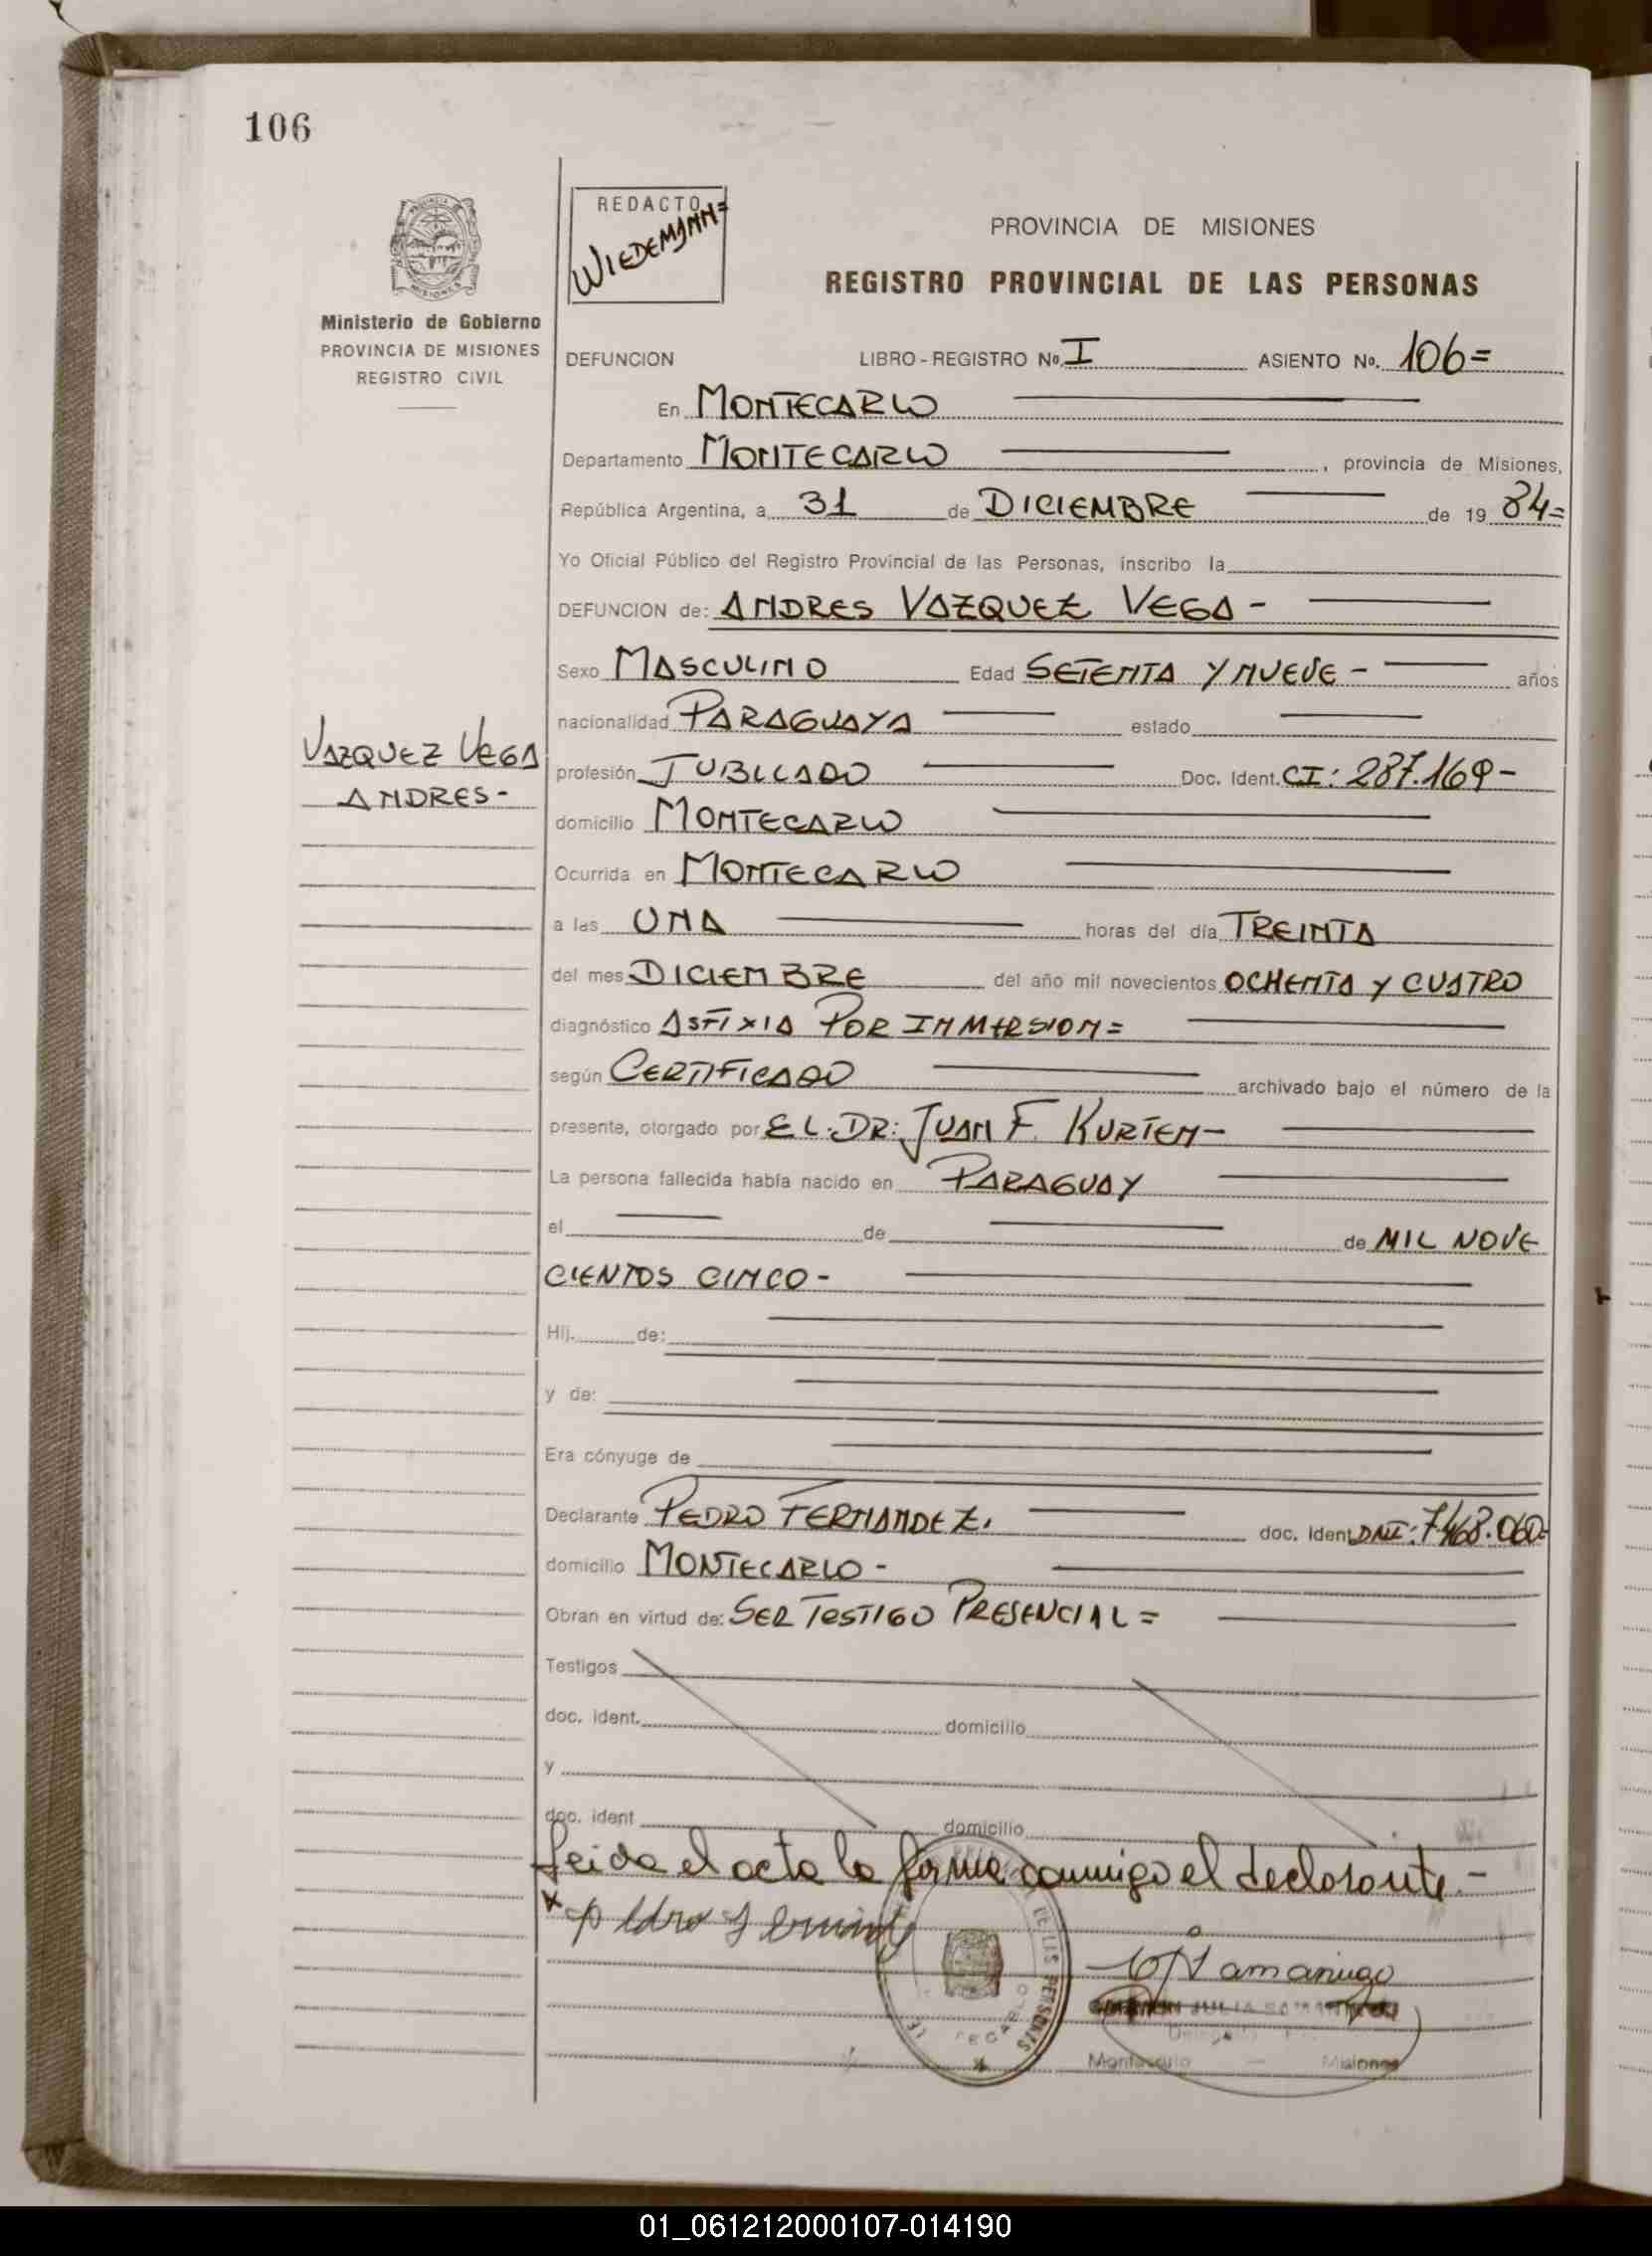 106
REDACTO
WIEDEMANN=
PROVINCIA DE MISIONES
REGISTRO PROVINCIAL DE LAS PERSONAS
Ministerio de Gobierno
PROVINCIA DE MISIONES
REGISTRO CIVIL
DEFUNCION LIBRO-REGISTRO No. I ASIENTO No. 106=
En MONTECARLO
Departamento MONTECARLO, provincia de Misiones,
República Argentina, a 31 de DICIEMBRE de 19 84=
Yo Oficial Público del Registro Provincial de las Personas, inscribo la
DEFUNCION de: ANDRES VAZQUEZ VEGA -
Sexo MASCULINO Edad SETENTA Y NUEVE - años
nacionalidad PARAGUAYA estado
VAZQUEZ VEGA
ANDRES-
profesión JUBILADO Doc. Ident. CI: 287.169-
domicilio MONTECARLO
Ocurrida en MONTECARLO
a las UNA horas del día TREINTA
del mes DICIEMBRE del año mil novecientos OCHENTA y CUATRO
diagnóstico ASFIXIA POR INMERSION=
según CERTIFICADO archivado bajo el número de la
presente, otorgado por EL.DR: JUAN F. KURTEN-
La persona fallecida había nacido en PARAGUAY
el de de MIL NOVE
CIENTOS CINCO-
Hij. de:
y de:
Era cónyuge de
Declarante PEDRO FERNANDEZ. doc. Ident DNI: 7.468.060-
domicilio MONTECARLO-
Obran en virtud de: SER TESTIGO PRESENCIAL=
Testigos
doc. ident. domicilio
y
doc. ident domicilio
Leida el acta la firma conmigo el declarante.-
DE LAS PERSONAS
JULIA
Misiones
01_061212000107-014190